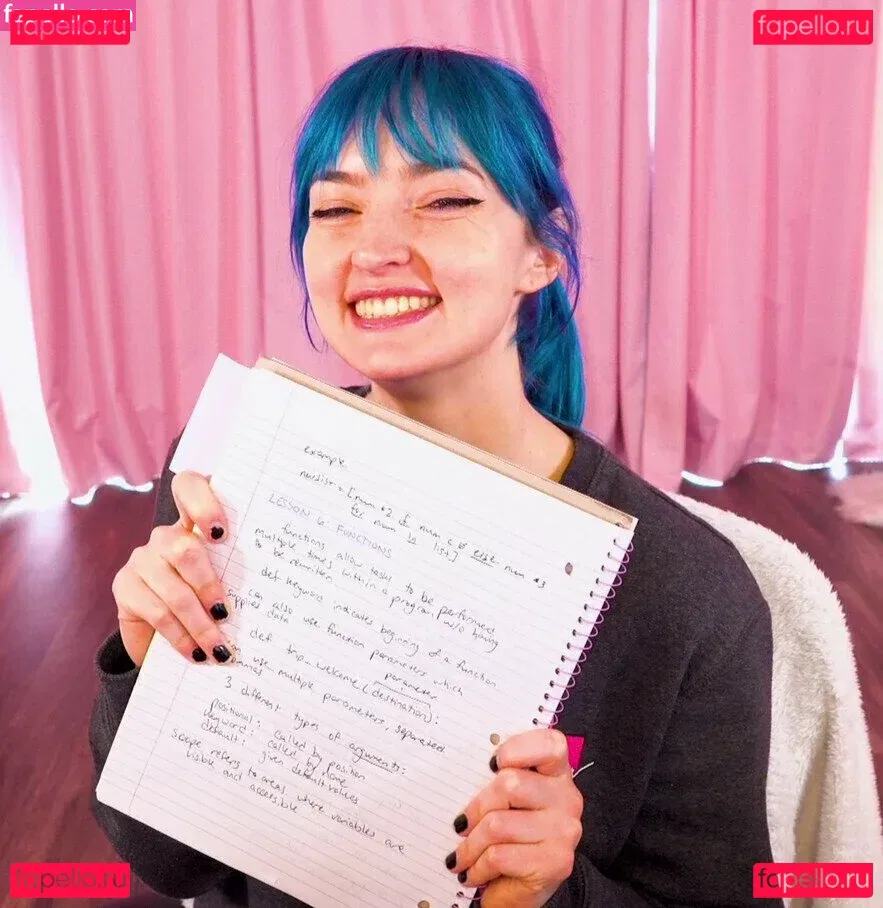 fapello.ru
fapello.ru
example
numlist = [num *2 if num < 0 else num *3
for num in list]
LESSON 6: FUNCTIONS
functions allow tasks to be performed
multiple times within a program w/o having
to be rewritten
def keyword indicates beginning of a function
can also use function parameters which
supplies data
parameter
def trip_welcome(destination):
can use multiple parameters, separated
commas
3 different types of arguments:
positional: called by position
keyword: called by name
default: given default values
scope refers to areas where variables are
visible and accessible
fapello.ru
fapello.ru